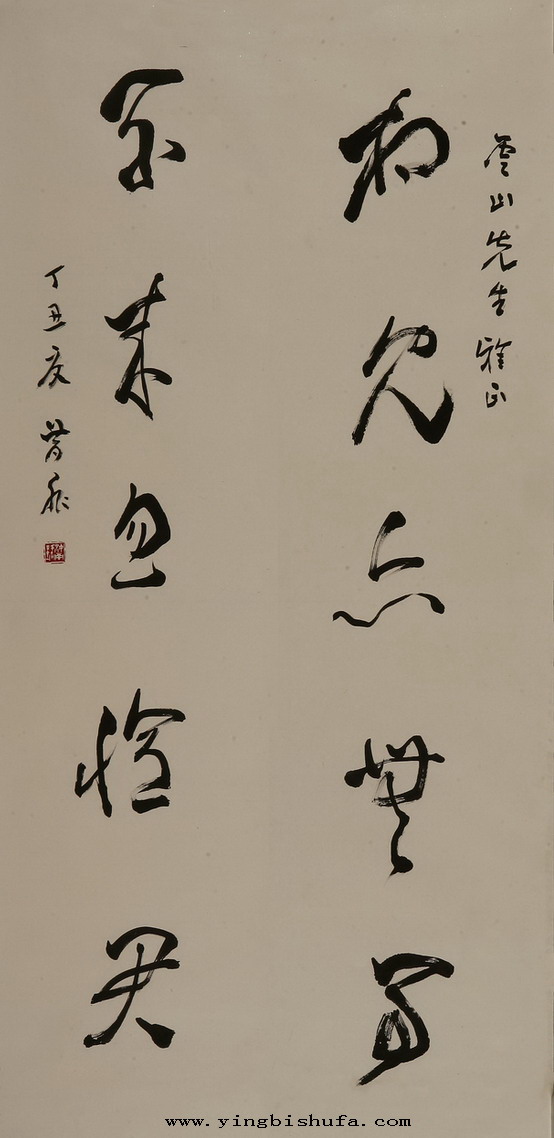 山先生雅正
相見亦無事
不來忽憶君
丁丑夏
www.yingbishufa.com